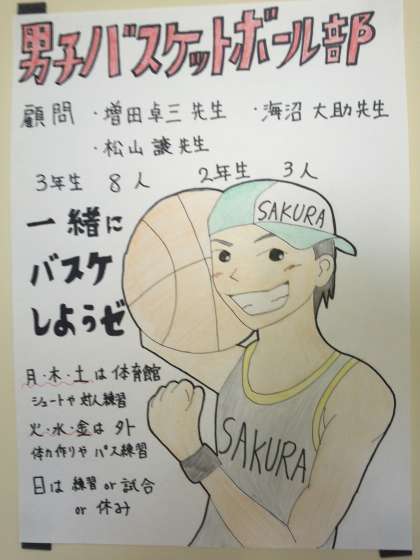 男子バスケットボール部
顧問 ・増田卓三先生 ・海沼大助先生
・松山譲先生
3年生 8人 2年生 3人
一緒に
バスケ
しようぜ
月・木・土は体育館
シュートや対人練習
火・水・金は外
体力作りやパス練習
日は練習or試合
or 休み
SAKURA
SAKURA